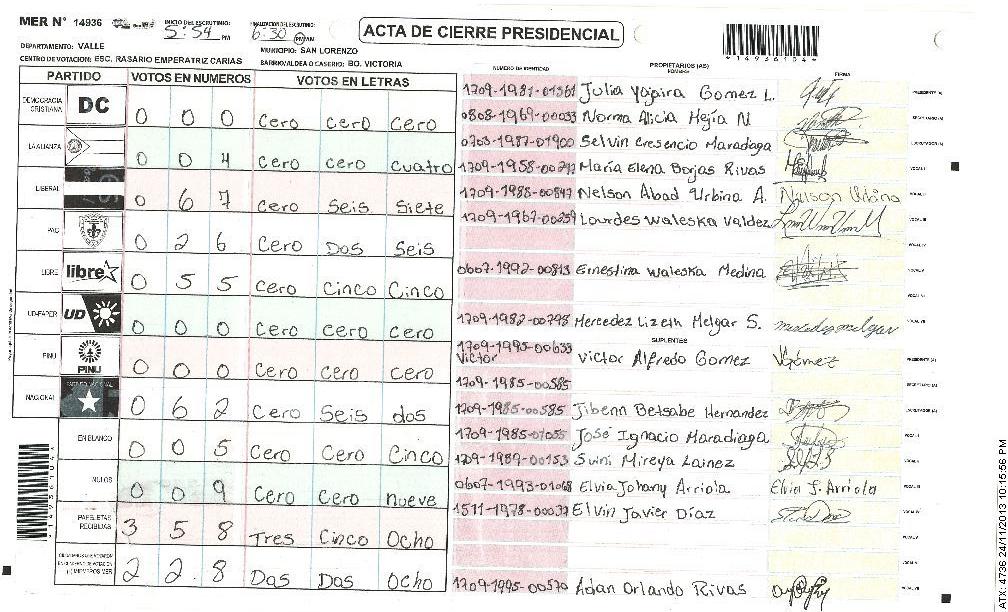 MER N° 14936
INICIO DEL ESCRUTINIO:
5:54 PM
FINALIZACION DEL ESCRUTINIO:
6:30 PM
ACTA DE CIERRE PRESIDENCIAL
*14936104*
DEPARTAMENTO: VALLE
MUNICIPIO: SAN LORENZO
CENTRO DE VOTACION: ESC. RASARIO EMPERATRIZ CARIAS
BARRIO/ALDEA O CASERIO: BO. VICTORIA
PARTIDO VOTOS EN NUMEROS VOTOS EN LETRAS
DEMOCRACIA CRISTIANA DC 0 0 0 Cero Cero Cero
LA ALIANZA 0 0 4 Cero cero cuatro
LIBERAL 0 6 7 Cero Seis Siete
PAC 0 2 6 Cero Dos Seis
LIBRE libre 0 5 5 Cero Cinco Cinco
UD-FAPER UD 0 0 0 Cero Cero Cero
PINU PINU 0 0 0 Cero Cero Cero
NACIONAL 0 6 2 Cero Seis dos
EN BLANCO 0 0 5 Cero Cero Cinco
NULOS 0 0 9 Cero Cero nueve
PAPELETAS RECIBIDAS 3 5 8 Tres Cinco Ocho
2 2 8 Dos Dos Ocho
NUMERO DE IDENTIDAD
PROPIETARIOS (AS)
NOMBRE
FIRMA
Julia Yajaira Gomez L. PRESIDENTE (A)
0808-1969-00033 Norma Alicia Mejia N SECRETARIO (A)
0703-1987-01900 Selvin Cresencio Maradaga ESCRUTADOR (A)
María Elena Borjas Rivas VOCAL I
1709-1988-00897 Nelson Abad Urbina A. Nelson Urbina VOCAL II
1709-1967-00259 Lourdes Waleska Valdez VOCAL III
VOCAL IV
0607-1992-00813 Ernestina Waleska Medina VOCAL V
VOCAL VI
1709-1982-00298 Mercedez Lizeth Melgar S. VOCAL VII
SUPLENTES
1709-1995-00633 Victor Victor Alfredo Gomez VGómez PRESIDENTE (A)
1709-1985-00585 SECRETARIO (A)
1709-1985-00585 Jibenn Betsabe Hernandez ESCRUTADOR (A)
1709-1985-01055 José Ignacio Maradiaga VOCAL I
1709-1989-00153 Suni Mireya Lainez VOCAL II
0607-1993-01068 Elvia Johany Arriola Elvia J. Arriola VOCAL III
1511-1978-00037 Elvin Javier Díaz VOCAL IV
VOCAL V
VOCAL VI
1709-1995-00570 Adan Orlando Rivas VOCAL VII
*14956104*
CATX 4736 24/11/2013 10:15:56 PM